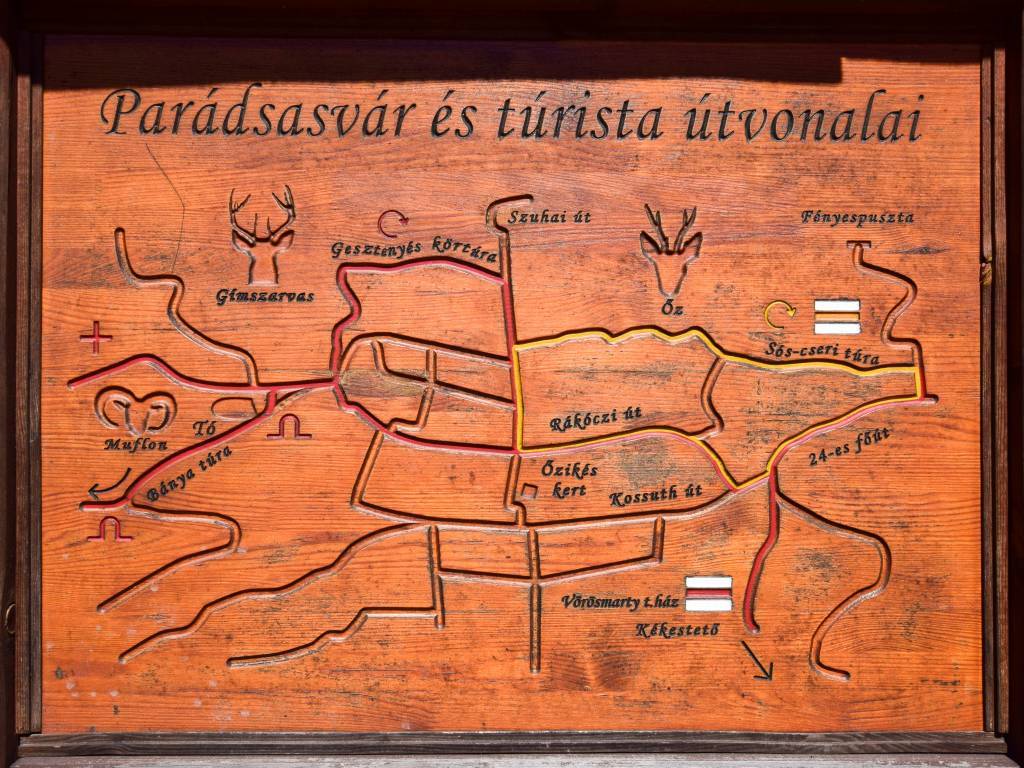 Parádsasvár és túrista útvonalai
Szuhai út
Fényespuszta
Gesztenyés körtúra
Gímszarvas
Őz
Sós-cseri túra
Muflon
Tó
Rákóczi út
24-es főút
Bánya túra
Őzikés
kert
Kossuth út
Vörösmarty t.ház
Kékestető